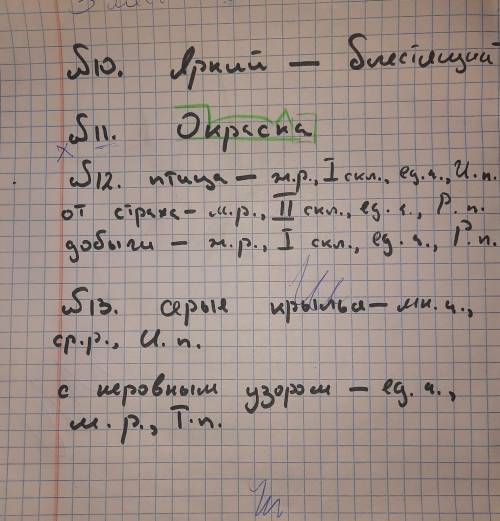 №10. Яркий — блестящий
№11. Окраска
№12. птица — ж.р., I скл., ед.ч., И.п.
от страха — м.р., II скл., ед.ч., Р.п.
добычи — ж.р., I скл., ед.ч., Р.п.
№13. серые крылья — мн.ч.,
ср.р., И.п.
с неровным узором — ед.ч.,
м.р., Т.п.